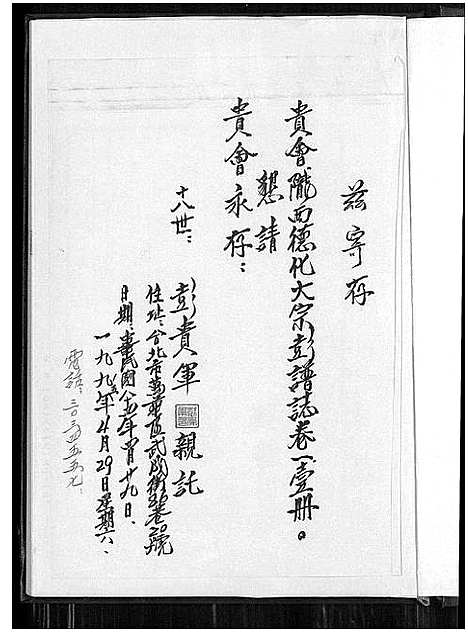 茲寄存
貴會隴西德化大宗彭譜誌卷一壹冊。
懇請
貴會永存:
十八世:
彭貴軍 親託
住址:台北市萬華區武成街巷號
日期:中華民國年四月廿九日、
一九九年4月29日星期六、
電話:三〇五五七